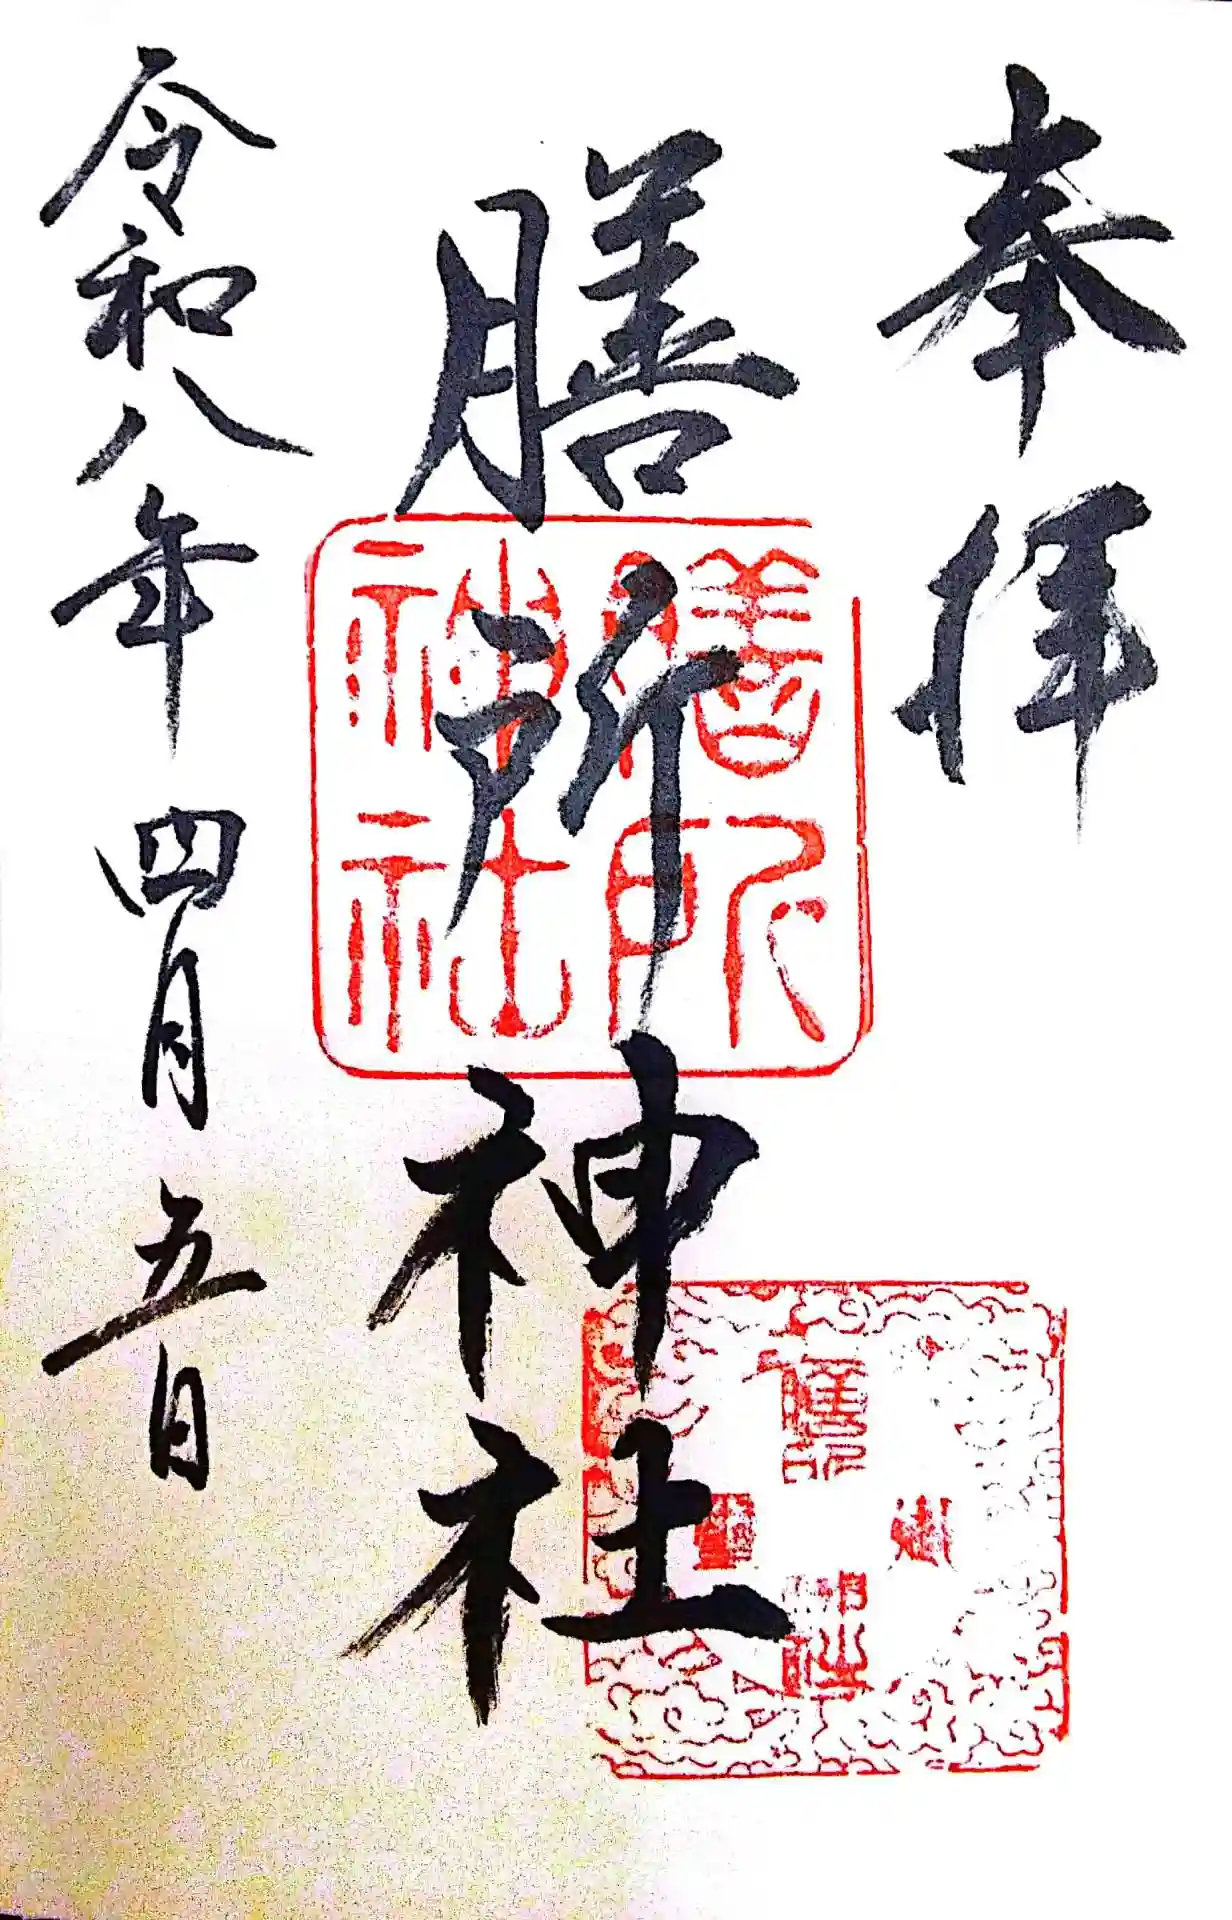 奉拝
膳所神社
令和八年四月五日
膳所
神社
膳所
神社